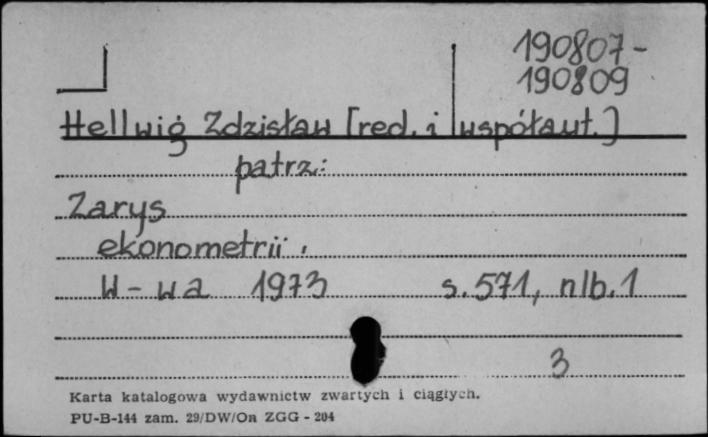 190807-
190809
Hellwig Zdzisław [red. i współaut.]
patrz:
Zarys
ekonometrii.
W-wa 1973 s. 571, nlb. 1
3
Karta katalogowa wydawnictw zwartych i ciągłych.
PU-B-144 zam. 29/DW/On ZGG - 204